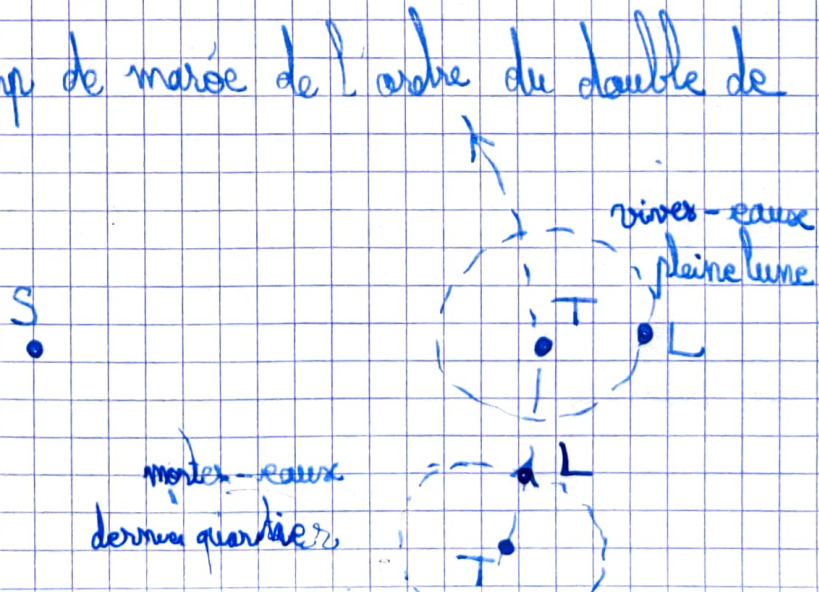 de marée de l'ordre du double de
vives-eaux
pleine lune
S
T
L
mortes-eaux
L
dernier quartier
T